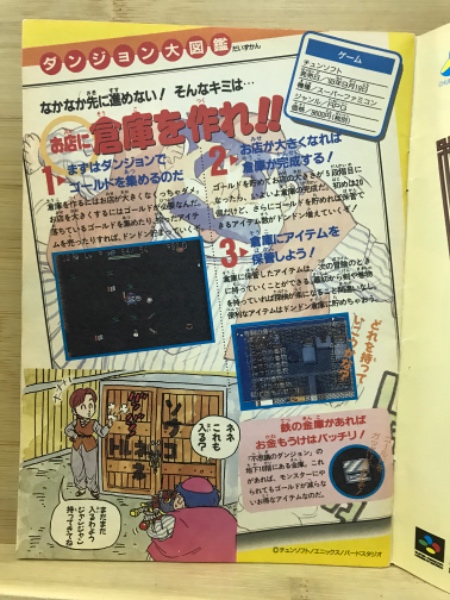 ダンジョン大図鑑
だいずかん
ゲーム
チュンソフト
発売日／'93年9月19日
機種／スーパーファミコン
ジャンル／RPG
価格／9600円(税別)
なかなか先に進めない！ そんなキミは…
お店に倉庫を作れ!!
1 まずはダンジョンで
ゴールドを集めるのだ
倉庫を作るにはお店が大きくなくっちゃダメ。
お店を大きくするにはゴールドが必要なんだ。
落ちているゴールドを集めたり、拾ったアイテ
ムを売ったりすれば、ドンドン貯まっていくぞ。
2 お店が大きくなれば
倉庫が完成する！
ゴールドを貯めてお店の大きさが5段階目に
なったら、いよいよ倉庫の完成だ。初めは10
個だけど、さらにゴールドを貯めれば保管で
きるアイテム数がドンドン増えていくぞ！
3 倉庫にアイテムを
保管しよう！
倉庫に保管したアイテムは、次の冒険のとき
に持っていくことができる。最初から剣や巻物
を持っていれば探検が楽になること間違いなし。
便利なアイテムはドンドン倉庫に貯めちゃおう。
どれを持って
いこうかな？
鉄の金庫があれば
お金もうけはバッチリ！
「不思議のダンジョン」の
地下10階にある金庫。これ
があれば、モンスターにや
られてもゴールドが減らな
いお得なアイテムなのだ。
ソウコ
トルネコ
ネネ
これも
入る？
まだまだ
入るわよう
ジャンジャン
持ってきてね
©チュンソフト／エニックス／バードスタジオ